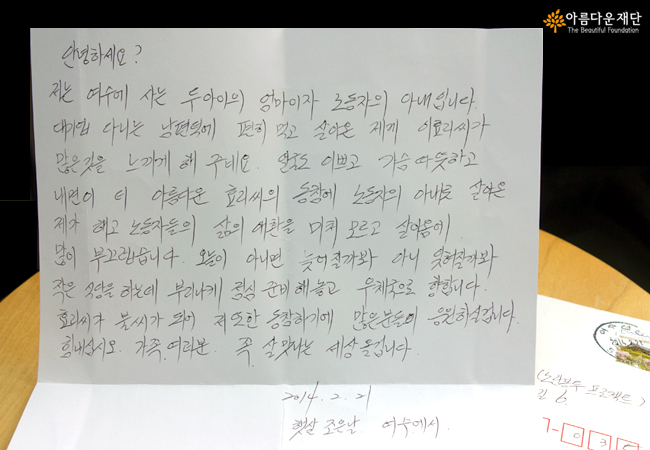 아름다운재단
The Beautiful Foundation
안녕하세요?
저는 여수에 사는 두아이의 엄마이자 노동자의 아내입니다.
대기업 다니는 남편덕에 편히 먹고 살아온 제게 이효리씨가
많은것을 느끼게 해 주네요. 얼굴도 이쁘고 가슴 따뜻하고
내면이 더 아름다운 효리씨의 동참에 노동자의 아내로 살아온
제가 해고 노동자들의 삶의 애환을 미처 모르고 살아옴에
많이 부끄럽습니다. 오늘이 아니면 늦어질까봐 아니 잊혀질까봐
작은 식당을 하는데 부리나케 점심 준비 해놓고 우체국으로 향합니다.
효리씨가 불씨가 되어 제 또한 동참하기에 많은분들이 응원하실겁니다.
힘내십시오. 가족 여러분. 꼭 살맛나는 세상 올겁니다.
2014. 2. 21
햇살 조은날 여수에서.
(노란봉투 프로젝트)
길 6.